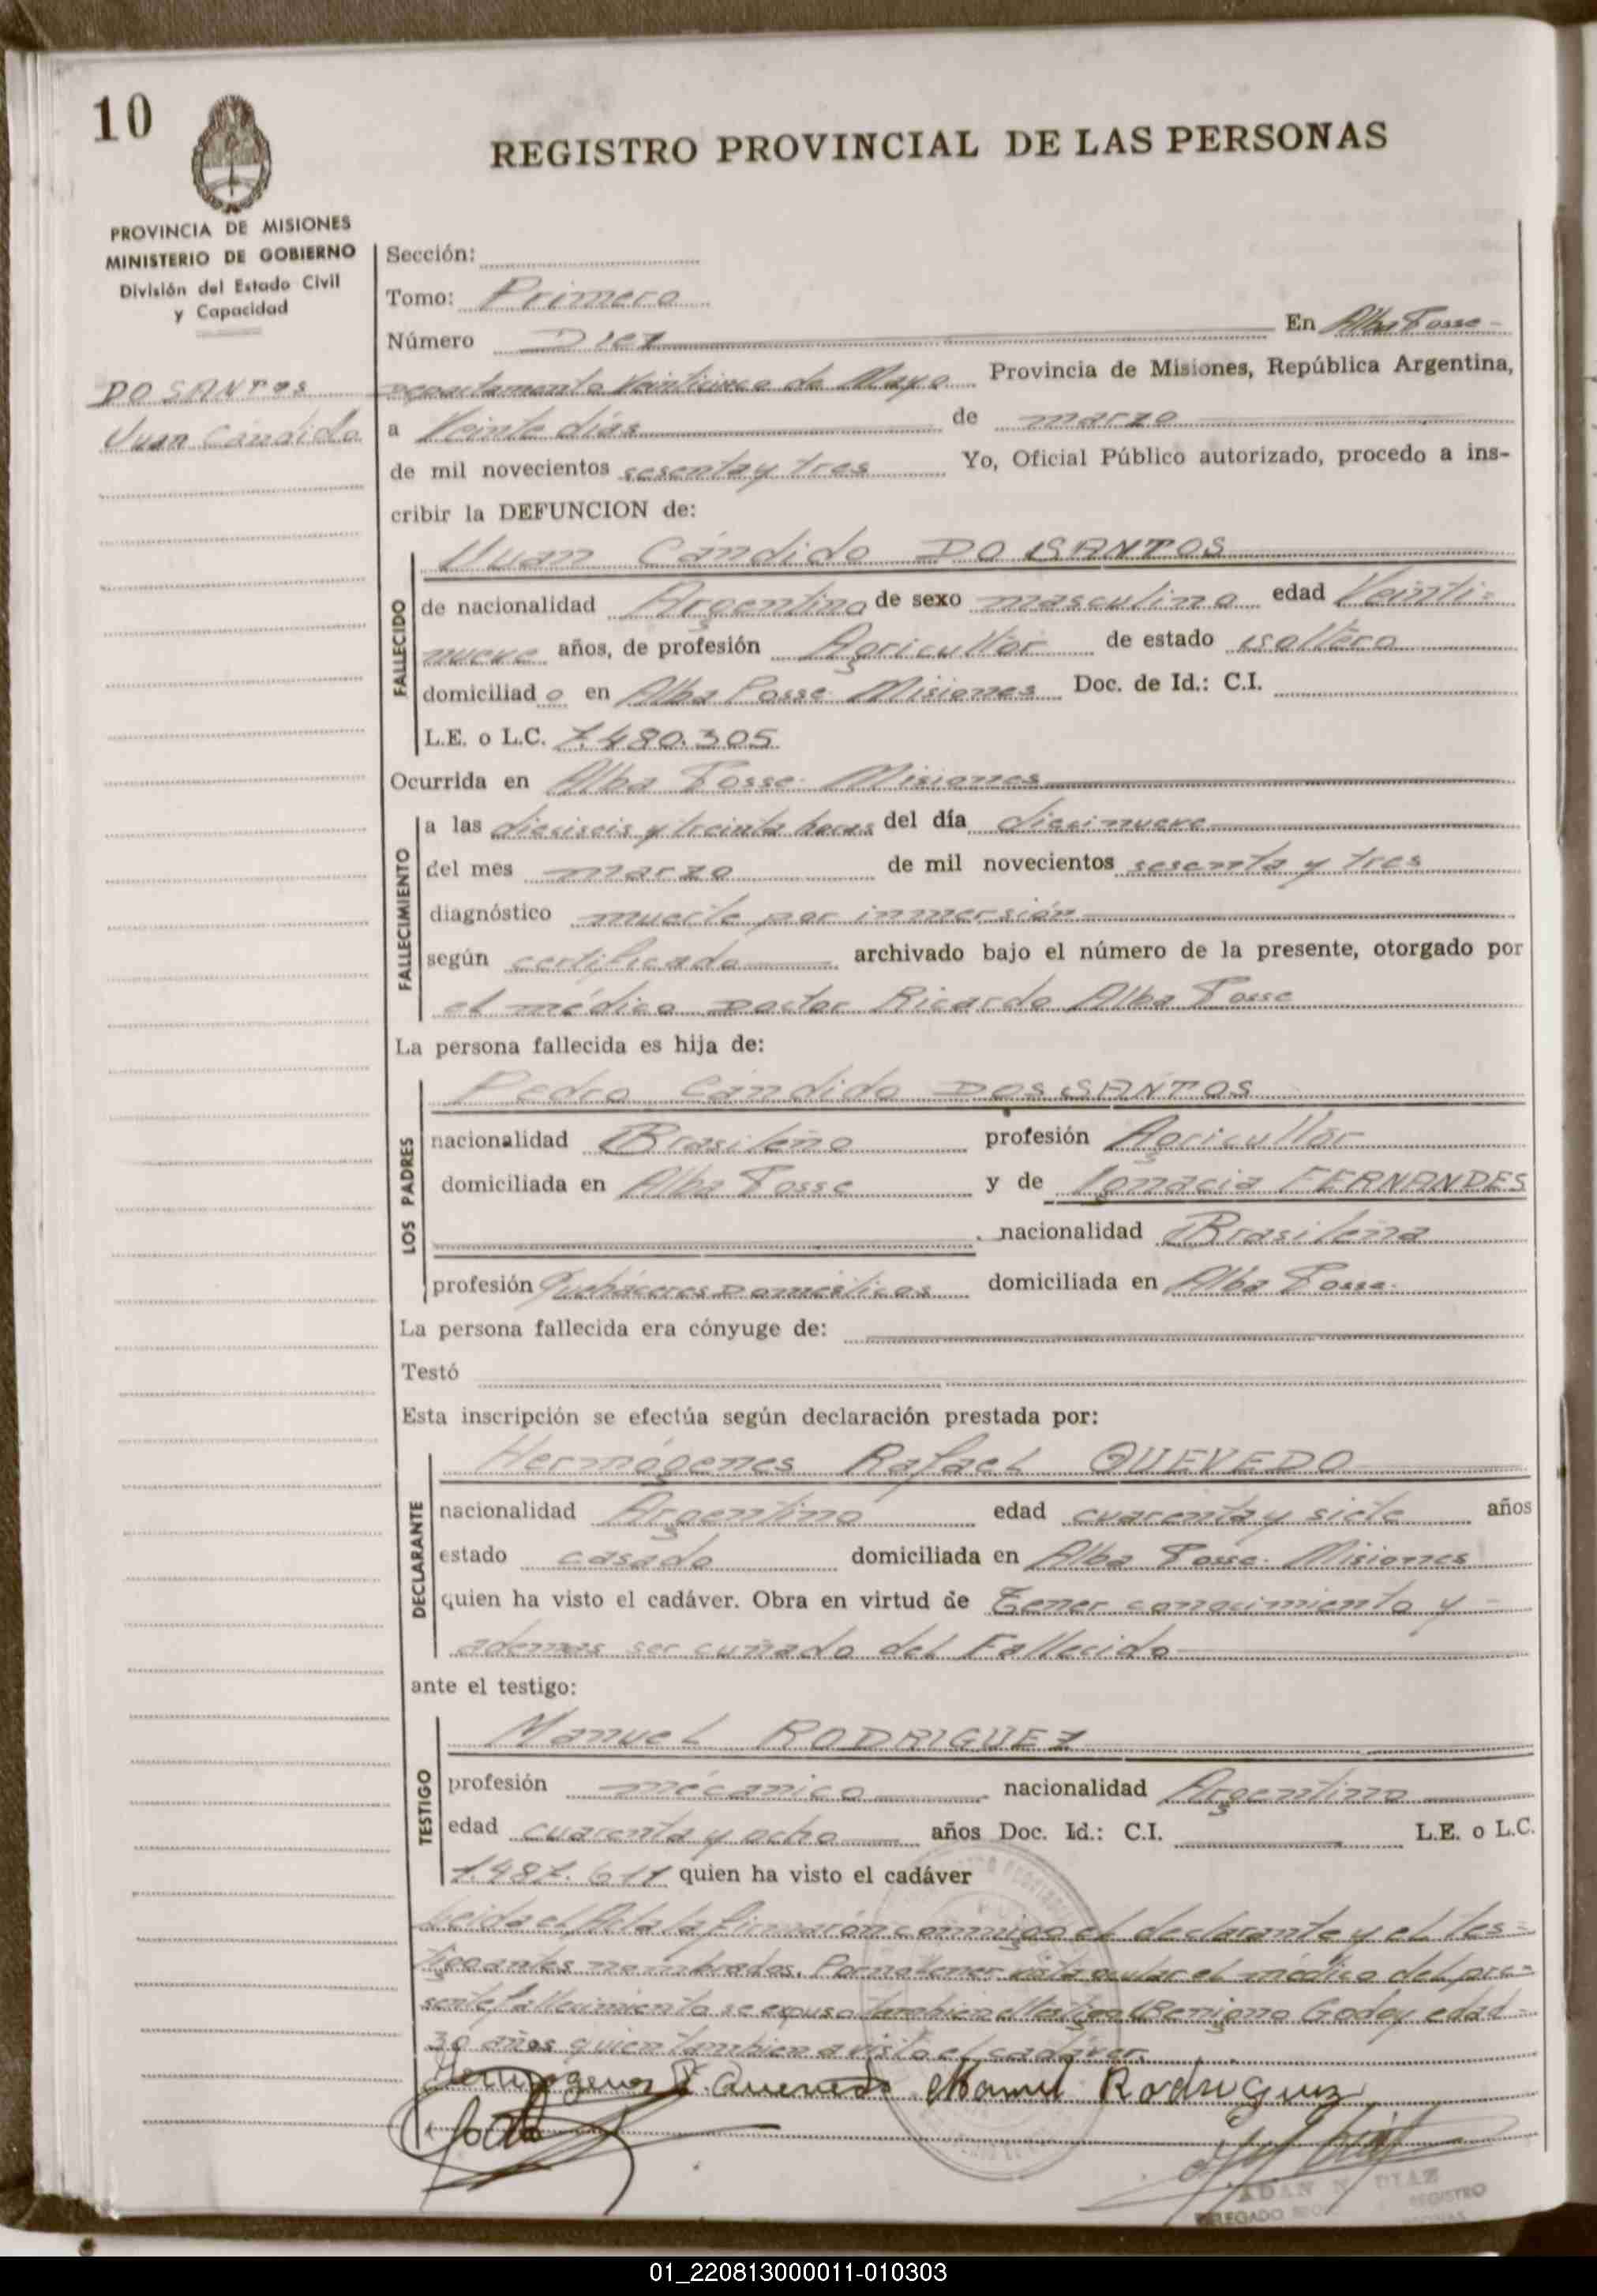 10
REGISTRO PROVINCIAL DE LAS PERSONAS
PROVINCIA DE MISIONES
MINISTERIO DE GOBIERNO
División del Estado Civil
y Capacidad
DO SANTOS
Juan Cándido
Sección:
Tomo: Primero
Número Diez En Alba Posse -
departamento Veinticinco de Mayo Provincia de Misiones, República Argentina,
a Veinte días de marzo
de mil novecientos sesenta y tres Yo, Oficial Público autorizado, procedo a ins-
cribir la DEFUNCION de:
Juan Cándido DO SANTOS
FALLECIDO
de nacionalidad Argentina de sexo masculino edad Veinti-
nueve años, de profesión Agricultor de estado soltero
domiciliado en Alba Posse Misiones Doc. de Id.: C.I.
L.E. o L.C. 7.480.305
Ocurrida en Alba Posse Misiones
FALLECIMIENTO
a las dieciseis y treinta horas del día diecinueve
del mes marzo de mil novecientos sesenta y tres
diagnóstico muerte por inmersión
según certificado archivado bajo el número de la presente, otorgado por
el médico Doctor Ricardo Alba Posse
La persona fallecida es hija de:
LOS PADRES
Pedro Cándido DOS SANTOS
nacionalidad Brasileño profesión Agricultor
domiciliada en Alba Posse y de Ignacia FERNANDES
nacionalidad Brasileña
profesión Quehaceres Domésticos domiciliada en Alba Posse
La persona fallecida era cónyuge de:
Testó
Esta inscripción se efectúa según declaración prestada por:
DECLARANTE
Hermógenes Rafael QUEVEDO
nacionalidad Argentino edad cuarenta y siete años
estado casado domiciliada en Alba Posse Misiones
quien ha visto el cadáver. Obra en virtud de Tener conocimiento y -
ademas ser cuñado del Fallecido
ante el testigo:
TESTIGO
Manuel RODRIGUEZ
profesión mécanico nacionalidad Argentino
edad cuarenta y ocho años Doc. Id.: C.I. L.E. o L.C.
quien ha visto el cadáver
Leida el Acta la firmarón conmigo el declarante y el tes-
tigo antes nombrados. Por no tener vista ocular el médico del pre-
sente fallecimiento se expuso tambien el testigo Benigno Godoy edad
30 años quien tambien a visto el cadáver.
Hermogenes R. Quevedo Manuel Rodriguez
ADAN N. DIAZ
DELEGADO REGISTRO
01_220813000011-010303